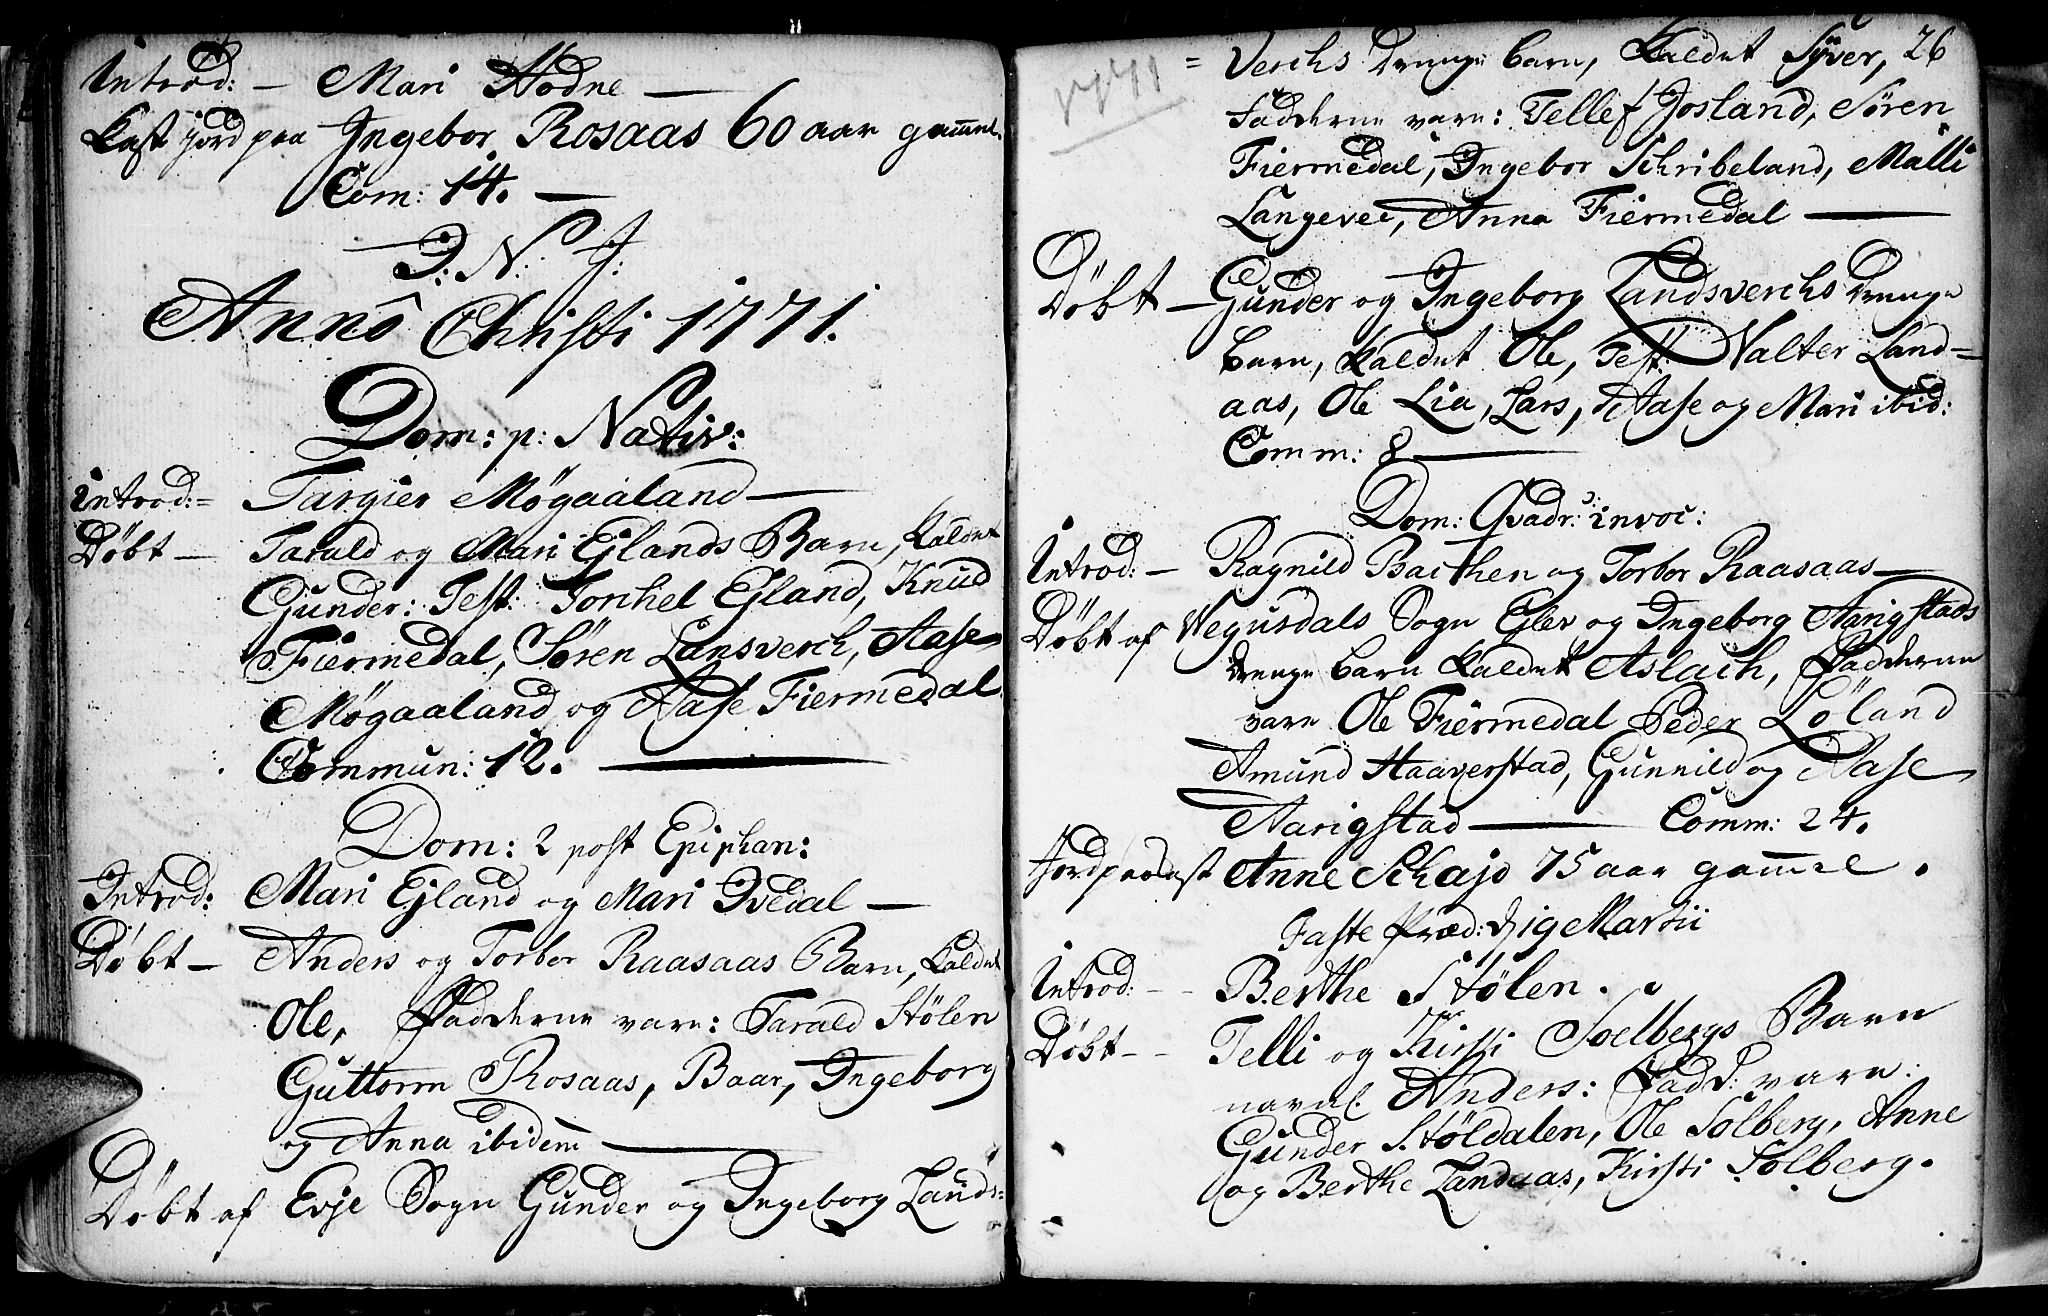 Introd: — Mari Hodne —
Kast jord paa Ingebor Rosaas 60 aar gam̄el.
Com: 14. —
I: N: J:
Annô Christi 1771.
Dom: p: Nativ:
Introd: = Targier Møgaaland —
Døbt — Tarald og Mari Ejlands Barn, kaldet
Gunder: Test: Torkel Ejland, Knud
Fiermedal, Søren Lansverch, Aase
Møgaaland og Aase Fiermedal
Commun: 12. —
Dom: 2 post Epiphan:
Introd: Mari Ejland og Mari Qvedal —
Døbt — Anders og Torbor Raasaas Barn, kaldet
Ole, Fadderne vare: Tarald Stølen
Guttorm Rosaas, Baar, Ingeborg
og Anna ibidem —
Døbt af Evje Sogn Gunder og Ingeborg Lands:
1771
= Verchs Drenge barn, kaldet Syver, 26
Fadderne vare: Tellef Josland, Sören
Fiermedal, Ingebor Schribeland, Målli
Langevei, Anna Fiermedal —
Døbt — Gunder og Ingeborg Landsverchs Drenge
barn, kaldet Ole, Test: Valter Land=
aas, Ole Lia, Lars, Aase og Mari ibid:
Comm: 8 —
Dom: Qvadr: invoc:
Introd: — Ragnild Bachen og Torbor Raasaas —
Døbt af Wegusdals Sogn Ejlev og Ingeborg Aarigstads
Drenge barn kaldet Aslach, Fadderne
vare Ole Fiermedal Peder Löland
Amund Haaverstad, Gunnild og Aase
Aarigstad — Comm: 24.
Jord paa kast Anne Schajo 75 aar gam̄el.
Faste Præd: d. 19 Martii
Introd: - - Berthe Stølen.
Døbt - - Telli og Kirsti Soelbergs Barn
navnl. Anders: Fadd: vare:
Gunder Støldalen, Ole Solberg, Anne
og Berthe Landaas, Kirsti Solberg.